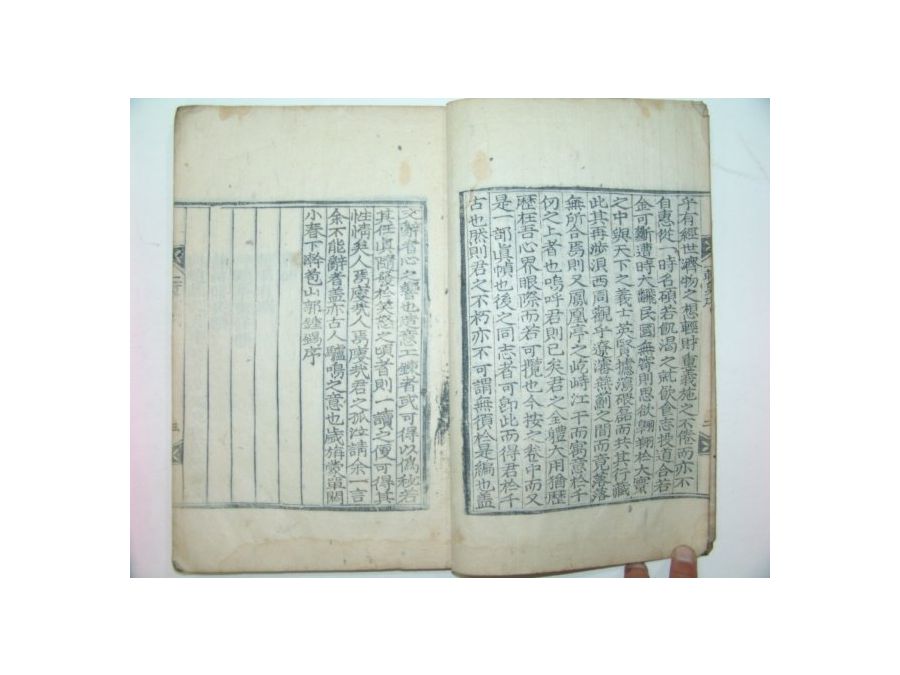 乎有經世濟物之想輕財重義施之不倦而亦不
自惠從一時名碩若飢渴之就飮食志操道合若
金可斷遭時大飜民國無寄則思欲翱翔於大寰
之中與天下之義士英賢攄濆磊而共其行藏
此其再涉浿西周觀乎遼瀋燕薊之間而竟落落
無所合焉則又鳳凰亭之屹峙江干而寓意於千
仞之上者也嗚呼君則已矣君之全體大用猶歷
歷在吾心界眼際而若可攬也今按之卷中而又
是一部眞幀也後之同志者可卽此而得君於千
古也然則君之不朽亦不可謂無須於是編也盖
文辭者心之聲也造意工鍊者或可得以僞秘若
其任眞隨發於笑慾之頃者則一讀之便可得其
性情矣人焉廋哉人焉廋哉君之孤泣請余一言
余不能辭者盖亦古人驢鳴之意也歲旃蒙單閼
小春下澣苞山郭鍾錫序
二
三